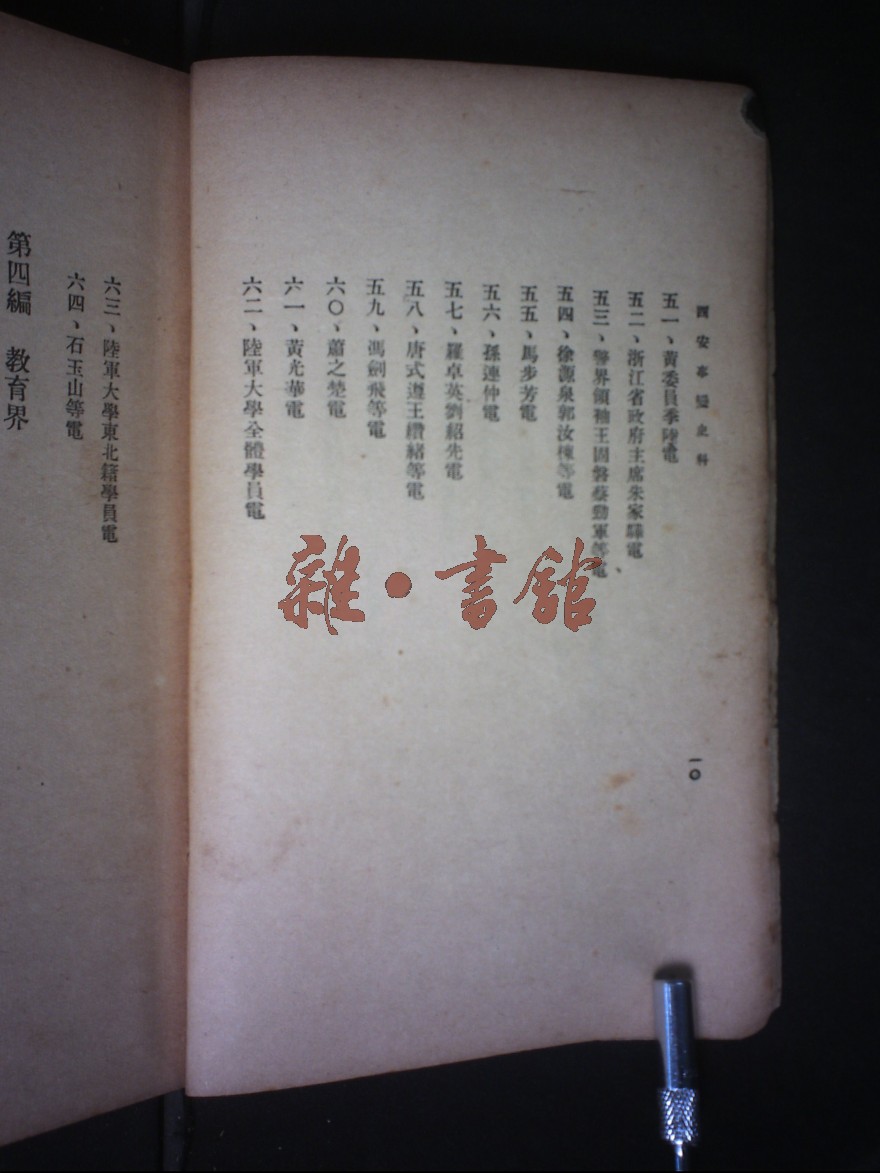 西安事變史料
五一、黃委員季陸電
五二、浙江省政府主席朱家驊電
五三、警界領袖王固磐蔡勁軍等電
五四、徐源泉郭汝棟等電
五五、馬步芳電
五六、孫連仲電
五七、羅卓英劉紹先電
五八、唐式遵王纘緒等電
五九、馮劍飛等電
六〇、蕭之楚電
六一、黃光華電
六二、陸軍大學全體學員電
一〇
六三、陸軍大學東北籍學員電
六四、石玉山等電
第四編 教育界
雜·書館